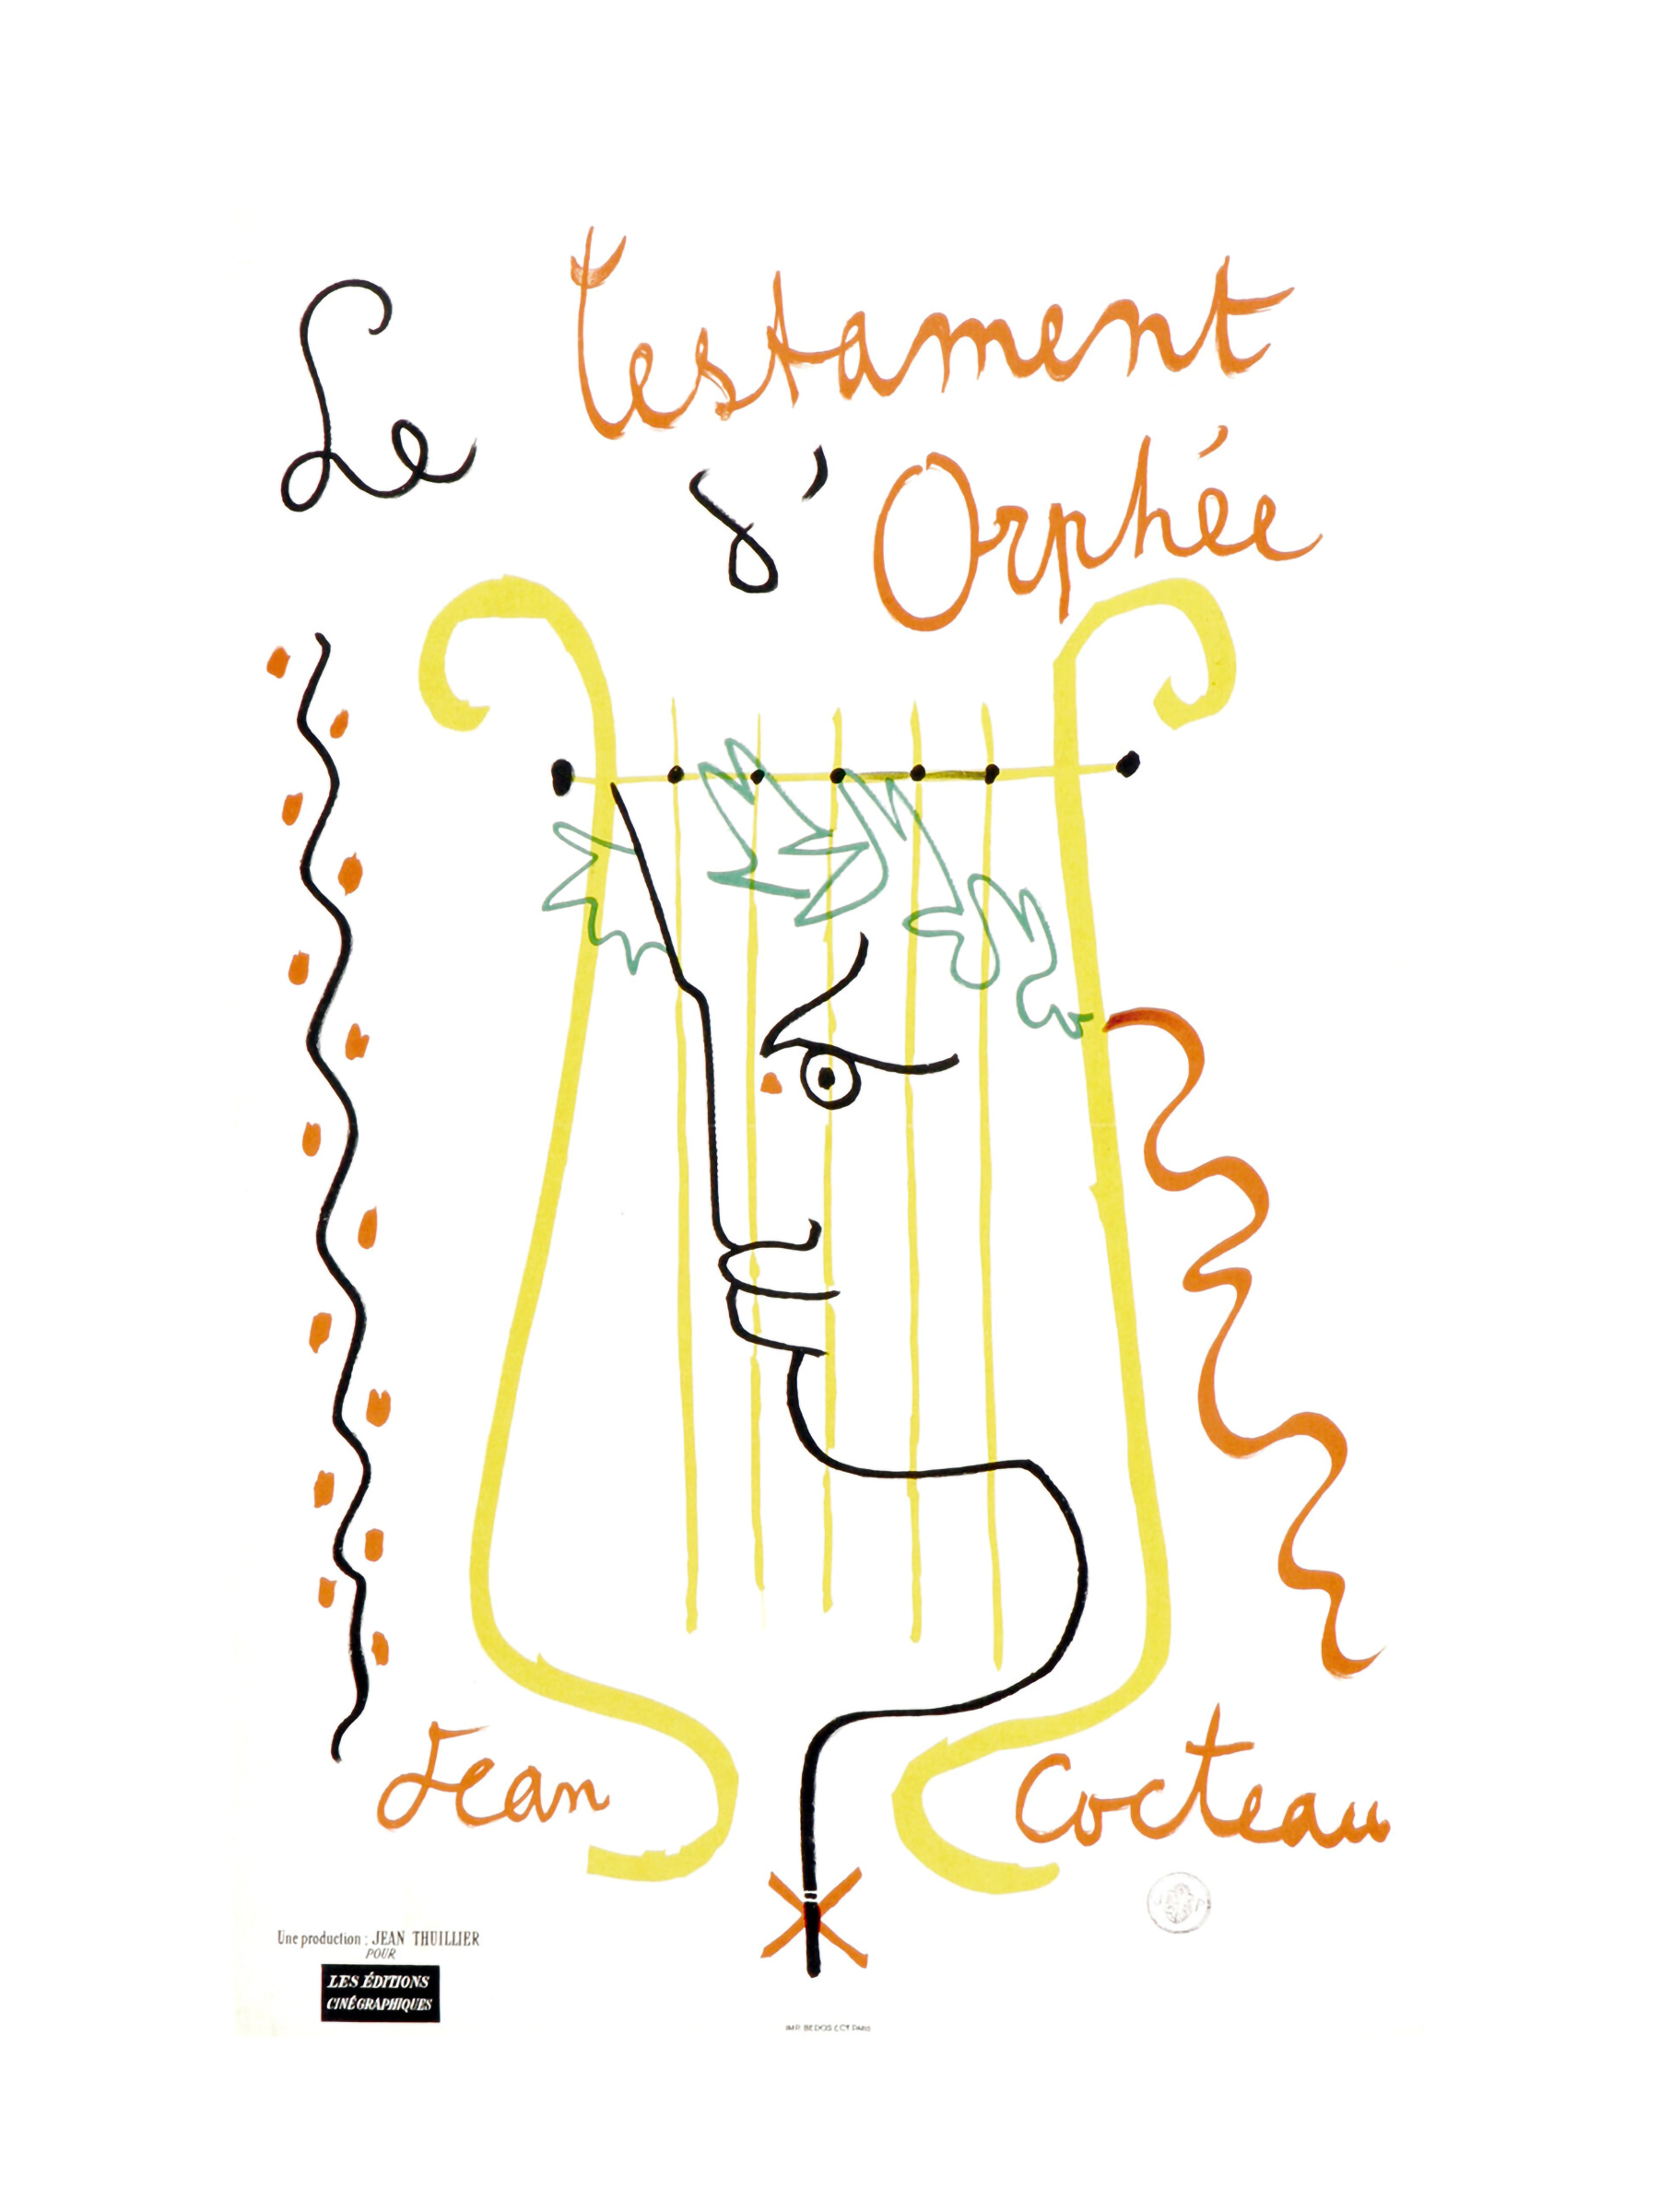 Le Testament
d'Orphée
Jean Cocteau
Une production : JEAN THUILLIER
POUR
LES ÉDITIONS
CINÉGRAPHIQUES
IMP. BEDOS & Cie PARIS